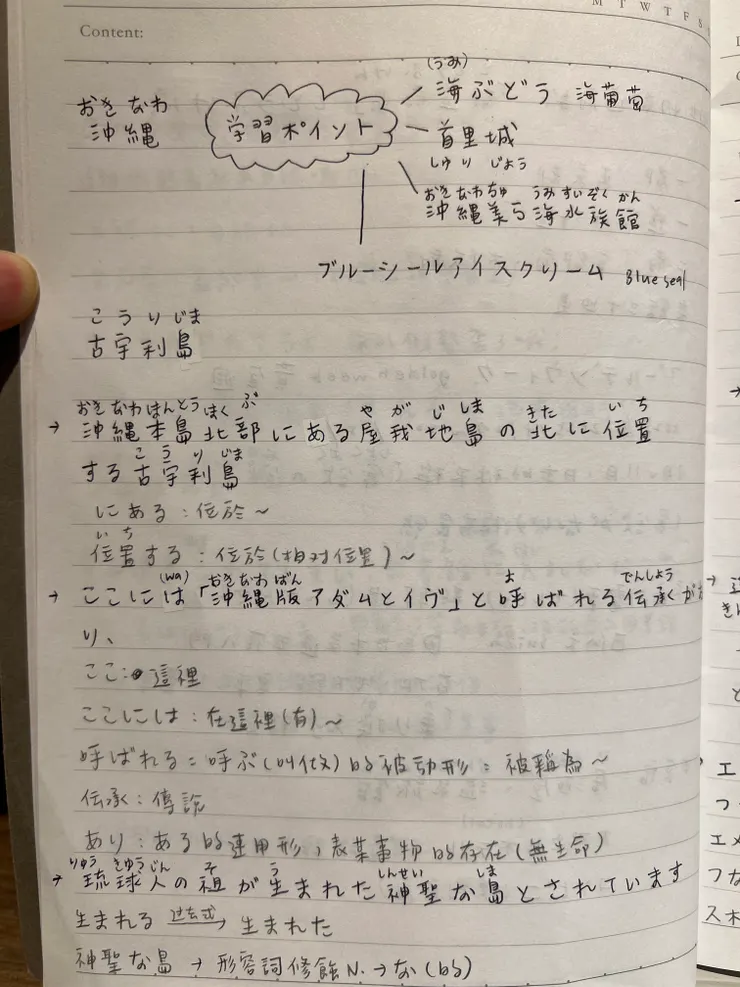 M T W T F S
Content:
(うみ)
海ぶどう 海葡萄
おき なわ
沖縄
学習ポイント
首里城
しゅり じょう
おき なわちゅ うみ すいぞく かん
沖縄美ら海水族館
ブルーシールアイスクリーム Blue seal
こうりじま
古宇利島
おきなわほんとうほくぶ やがじしま きた いち
→ 沖縄本島北部にある屋我地島の北に位置
こうりじま
する古宇利島
にある:位於~
いち
位置する:位於(相对位置)~
(wa) おきなわばん よ でんしょう
→ ここには「沖縄版アダムとイヴ」と呼ばれる伝承があ
り、
ここ:這裡
ここには:在這裡(有)~
呼ばれる:呼ぶ(叫做)的被动形:被稱為~
伝承:傳說
あり:ある的連用形,表某事物的存在(無生命)
りゅう きゅうじん そ う しんせい しま
→ 琉球人の祖が生まれた神聖な島とされています
生まれる 过去式→ 生まれた
神聖な島 → 形容詞修飾N.→な(的)